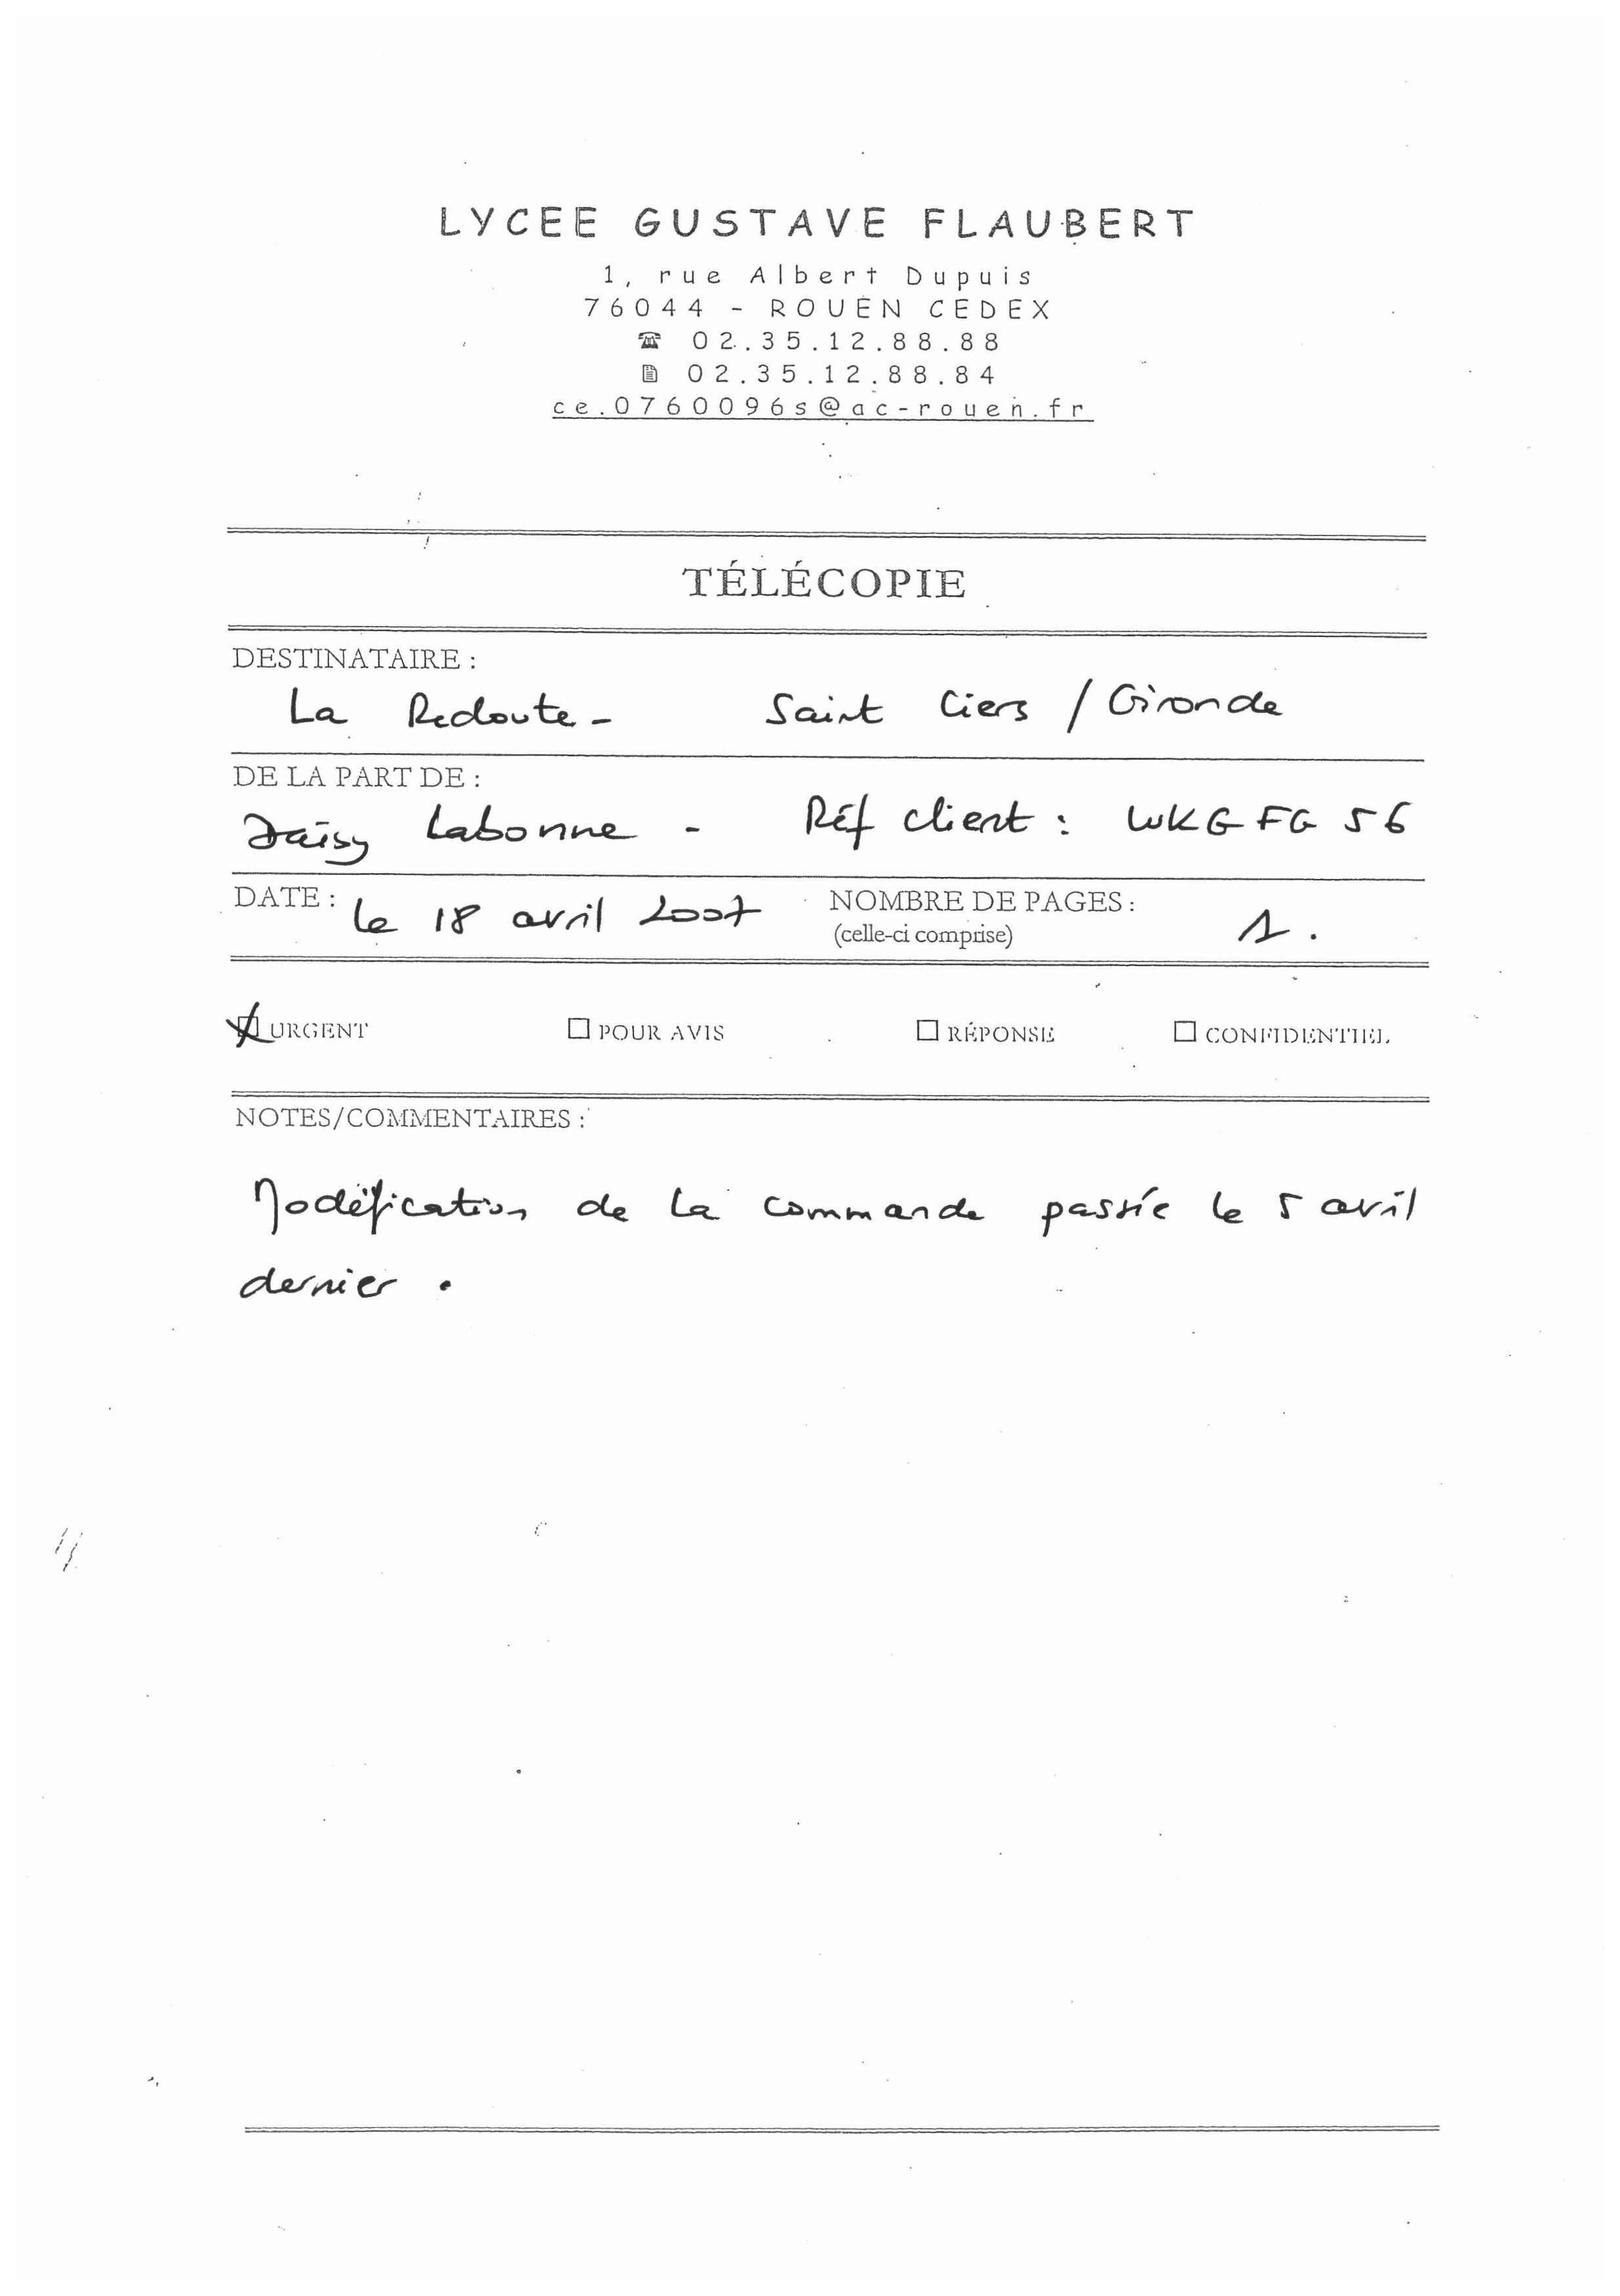 LYCEE GUSTAVE FLAUBERT
1, rue Albert Dupuis
76044 - ROUEN CEDEX
☎ 02.35.12.88.88
02.35.12.88.84
ce.0760096s@ac-rouen.fr
TÉLÉCOPIE
DESTINATAIRE :
La Redoute - Saint Ciers / Gironde
DE LA PART DE :
Daisy Labonne - Réf client : WKGFG 56
DATE : le 18 avril 2007 NOMBRE DE PAGES : 1.
(celle-ci comprise)
URGENT POUR AVIS RÉPONSE CONFIDENTIEL
NOTES/COMMENTAIRES :
Modification de la commande passée le 5 avril
dernier .